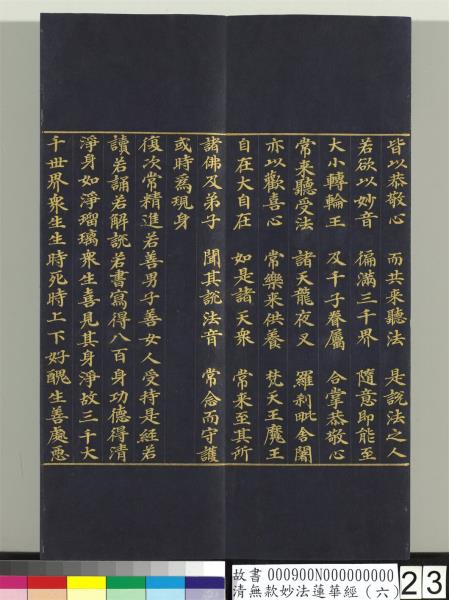 皆以恭敬心　而共來聽法　是說法之人
若欲以妙音　徧滿三千界　隨意即能至
大小轉輪王　及千子眷屬　合掌恭敬心
常來聽受法　諸天龍夜叉　羅剎毗舍闍
亦以歡喜心　常樂來供養　梵天王魔王
自在大自在　如是諸天衆　常來至其所
諸佛及弟子　聞其說法音　常念而守護
或時為現身
復次常精進若善男子善女人受持是經若
讀若誦若解說若書寫得八百身功德得清
淨身如淨瑠璃衆生喜見其身淨故三千大
千世界衆生生時死時上下好醜生善處惡
故書 000900N000000000
清無款妙法蓮華經（六）
23